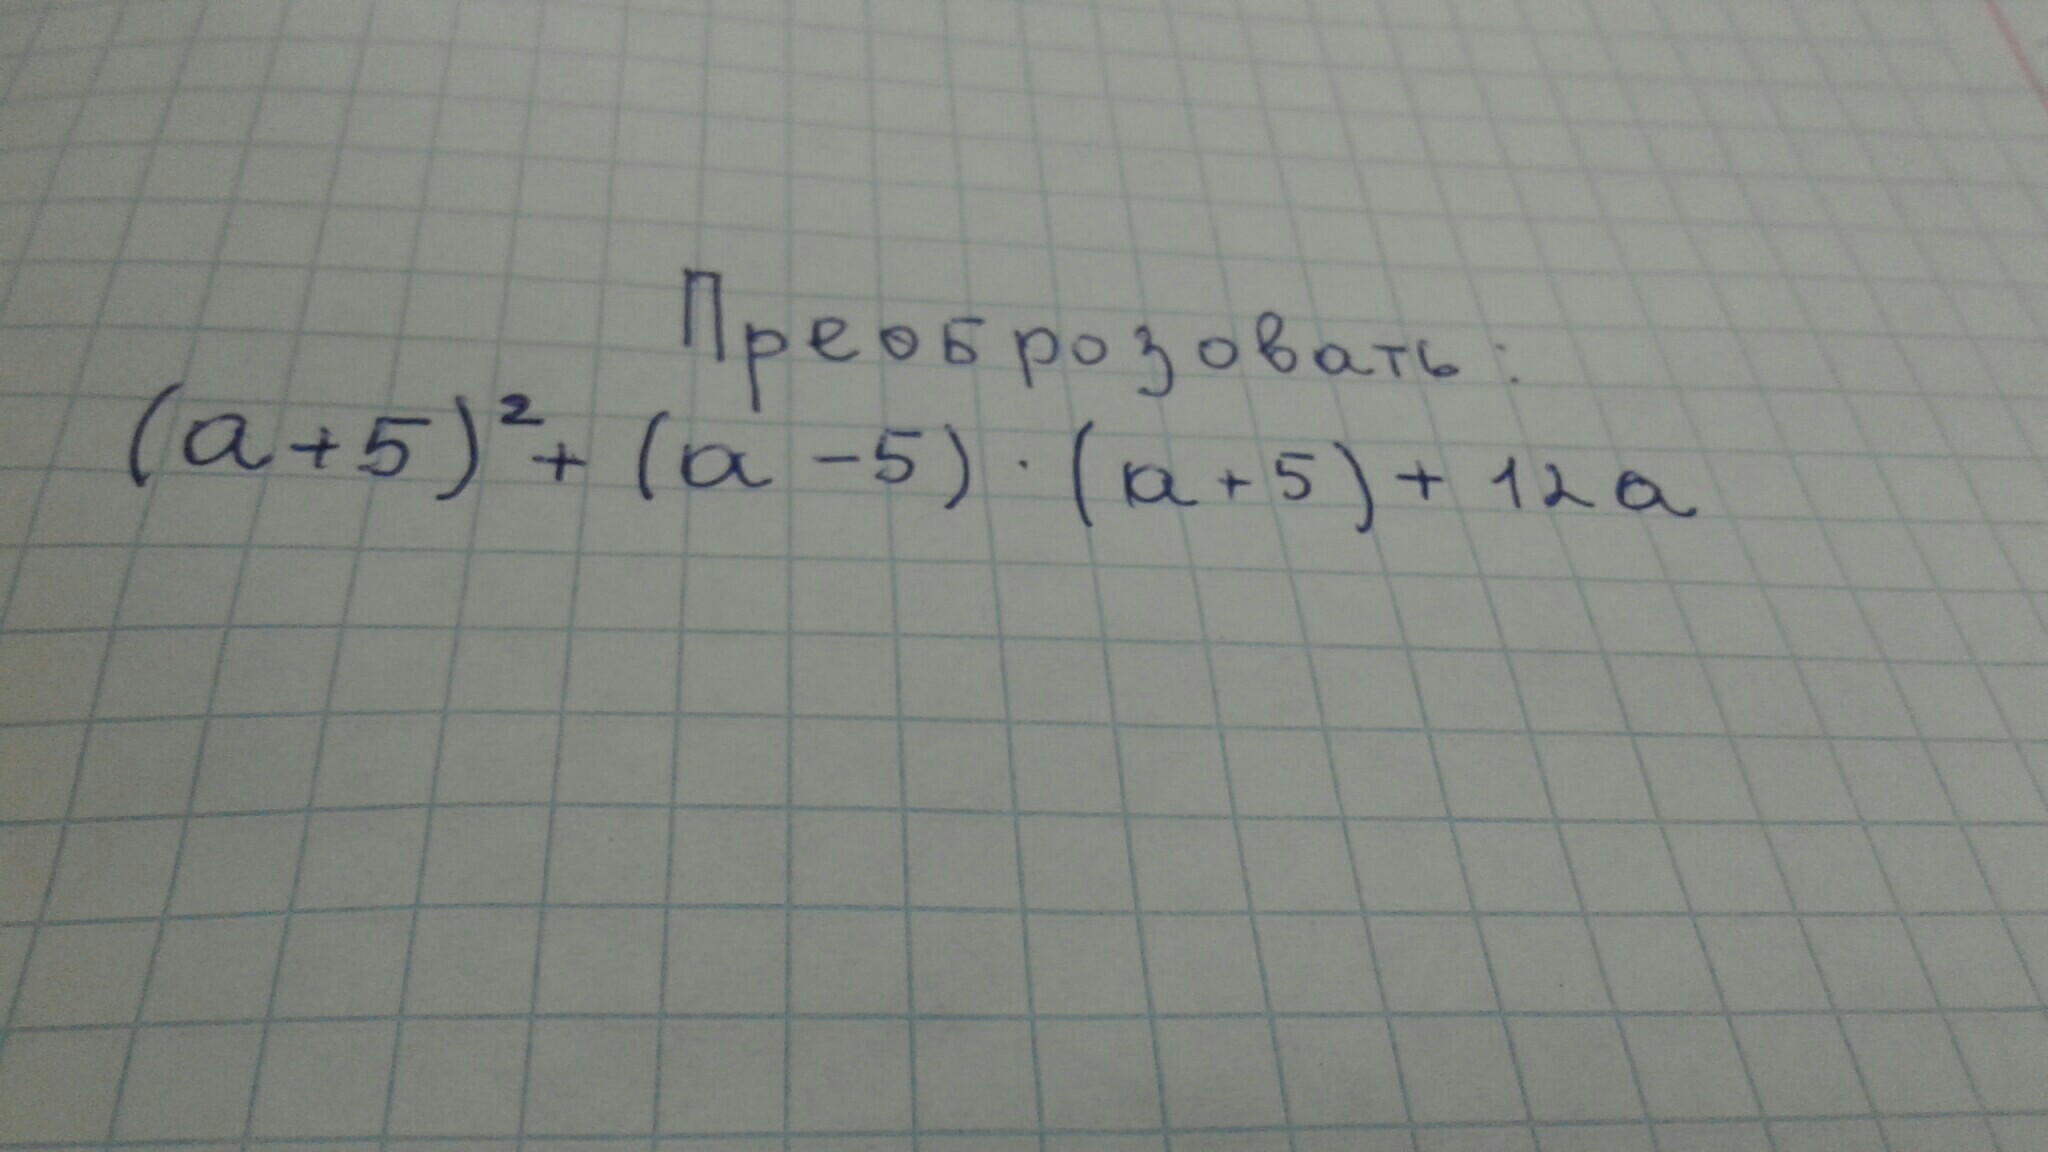 Преоброзовать:
(a+5)²+(a-5)·(a+5)+12a